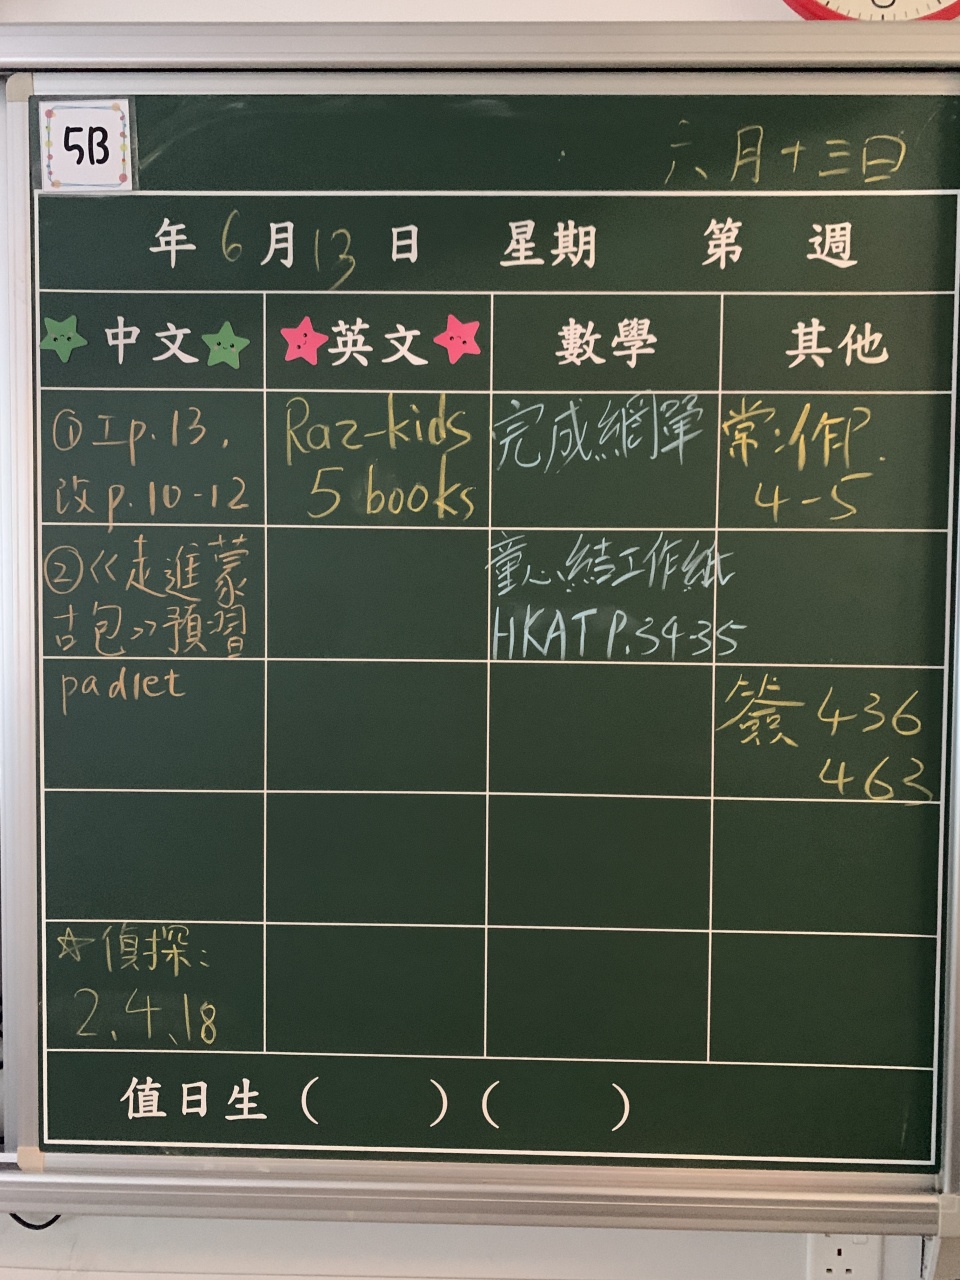 5B
六月十三日
年 6 月 13 日 星期 第 週
中文 英文 數學 其他
①工p.13,
改p.10-12
Raz-kids
5 books
完成網單
常:作P.
4-5
②《走進蒙
古包》預習
padlet
童心結工作紙
HKAT P.34-35
簽 436
463
☆偵探:
2、4、18
值日生 ( ) ( )